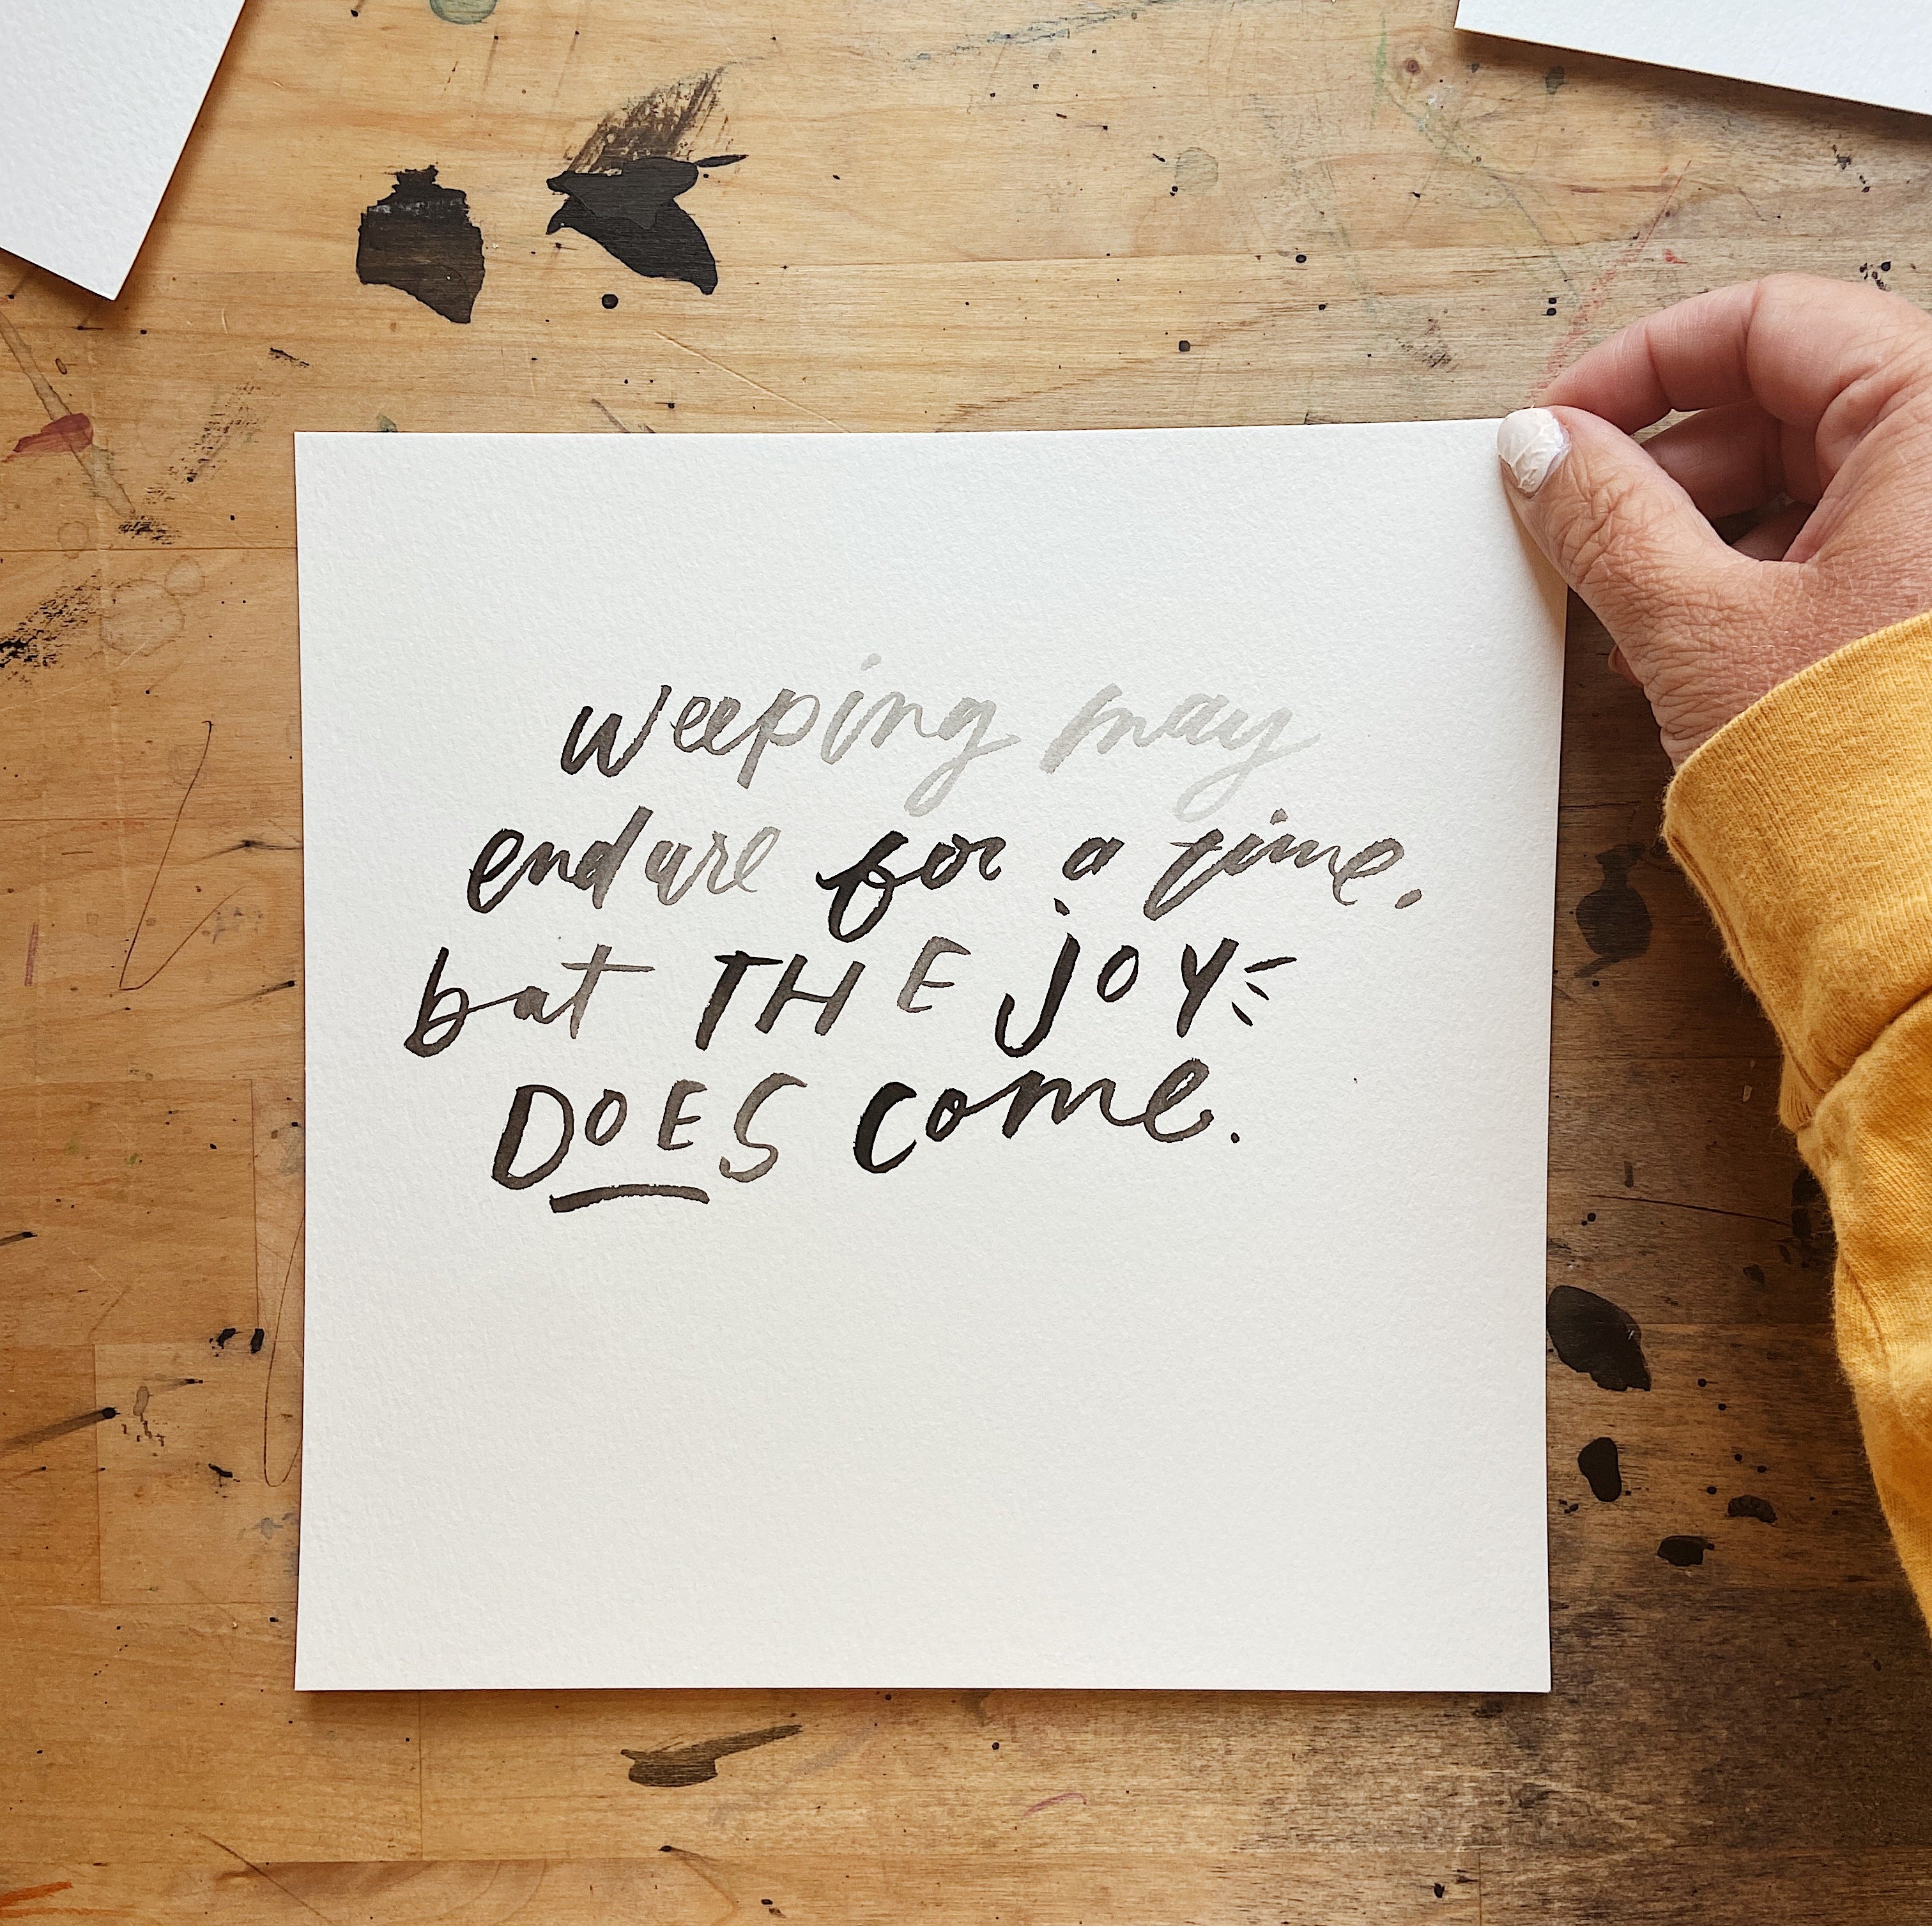 weeping may
endure for a time.
but THE JOY
DOES come.